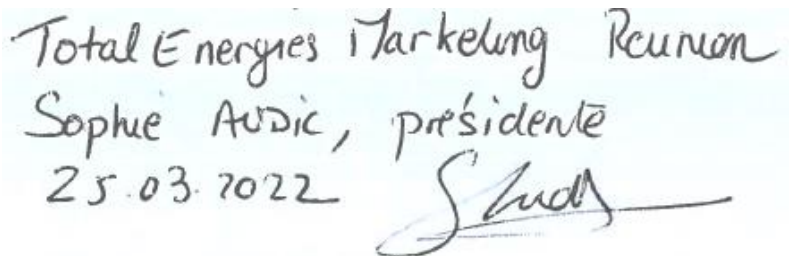 Total Energies Marketing Reunion
Sophie AUDIC, présidente
25.03.2022